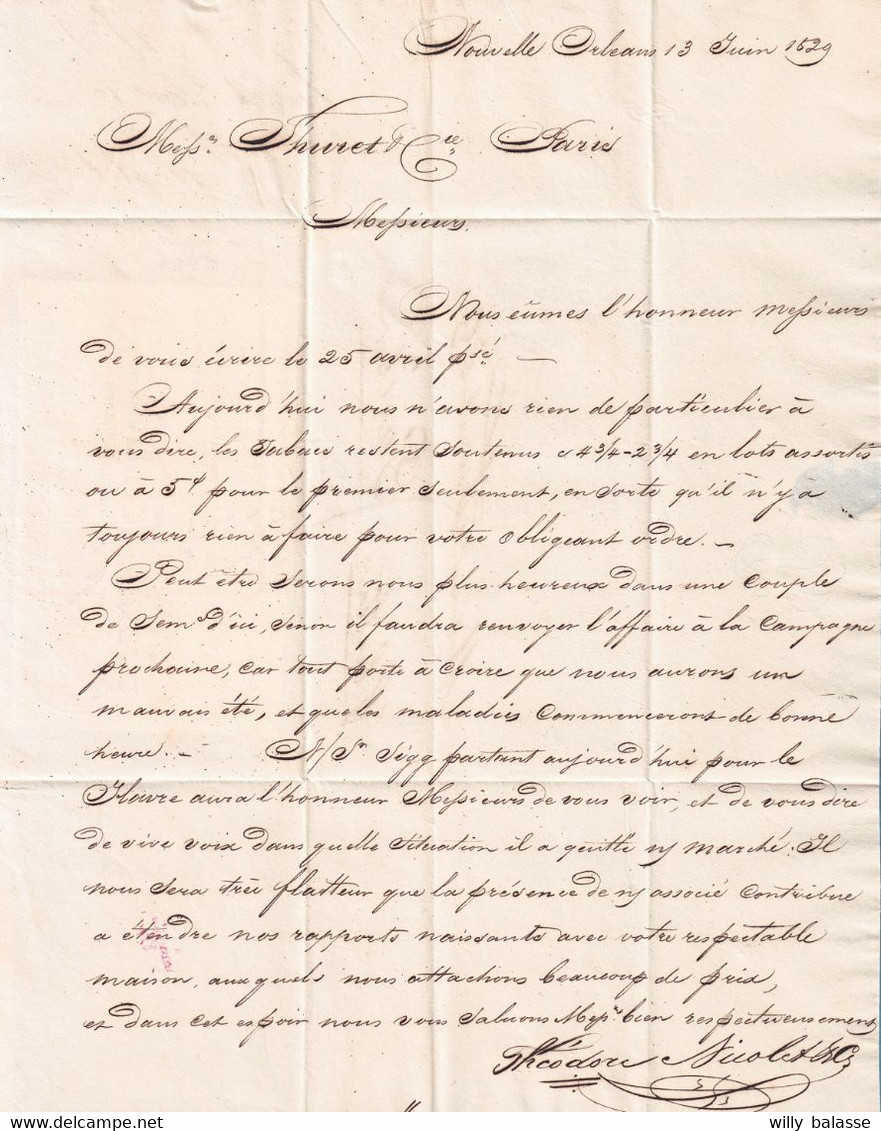 Nouvelle Orleans 13 Juin 1829
Messrs Thuret & Cie Paris
Messieurs.
Nous eûmes l'honneur Messieurs
de vous écrire le 25 avril psé —
Aujourd'hui nous n'avons rien de particulier à
vous dire, les Tabacs restent soutenus a 4 3/4 - 2 3/4 en lots assortis
ou à 5 pour le premier seulement, en sorte qu'il n'y a
toujours rien à faire pour votre obligeant ordre. —
Peut être serons nous plus heureux dans une couple
de Sems d'ici, sinon il faudra renvoyer l'affaire à la Campagne
prochaine, car tout porte à croire que nous aurons un
mauvais été, et que les maladies commenceront de bonne
heure. — N/Sr Sigg partant aujourd'hui pour le
Havre aura l'honneur Messieurs de vous voir, et de vous dire
de vive voix dans quelle situation il a quitté n/ marché. Il
nous sera très flatteur que la présence de n/ associé contribue
a étendre nos rapports naissants avec votre respectable
maison, auxquels nous attachons beaucoup de prix,
et dans cet espoir nous vous saluons Messrs bien respectueusement
Théodore Nicolet & Co
willy balasse